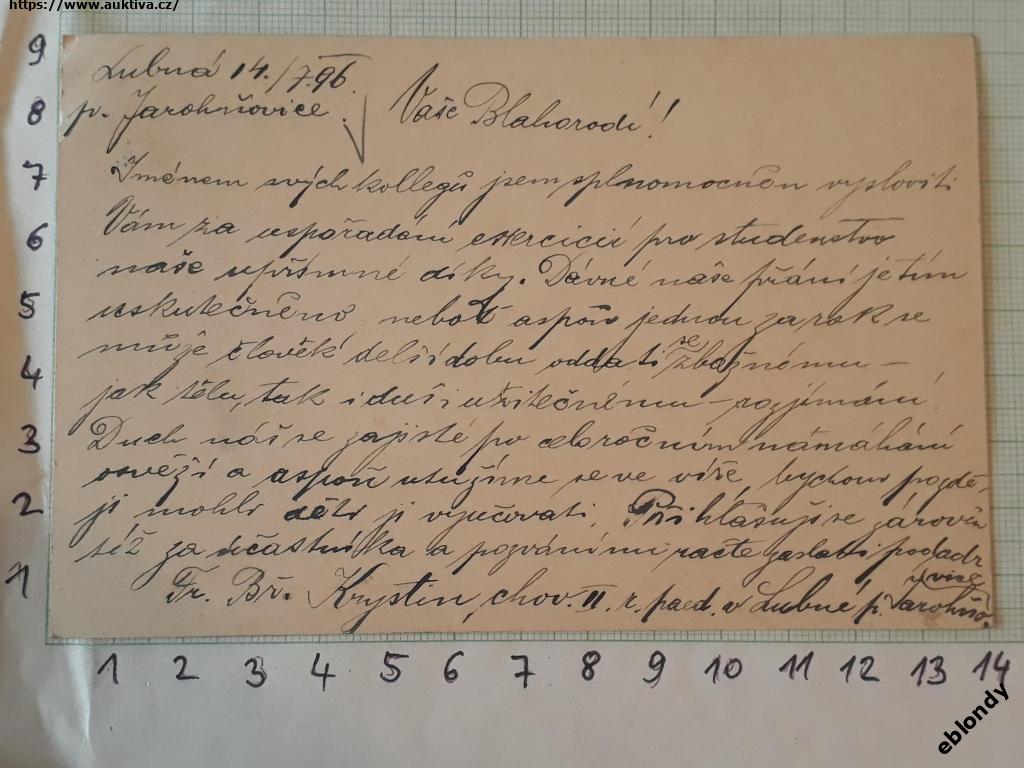 https://www.auktiva.cz/
Lubná 14./7.96.
p. Jarohňovice.
Vaše Blahorodí!
Jménem svých kollegů jsem splnomocněn vysloviti
Vám za uspořádání exercicií pro studenstvo
naše upřímné díky. Dávné naše přání je tím
uskutečněno, neboť aspoň jednou za rok se
může člověk delší dobu oddati se zbožnému –
jak tělu, tak i duši užitečnému – rozjímání.
Duch náš se zajisté po celoročním namáhání
osvěží a aspoň utužíme se ve víře, bychom pozdě-
ji mohli děti jí vyučovati. Přihlašuji se zároveň
též za účastníka a pozvání mi račte zaslati pod adr
Fr. Bř. Krystin, chov. II. r. paed. v Lubné p. Jarohňo-
vice
9
8
7
6
5
4
3
2
1
1 2 3 4 5 6 7 8 9 10 11 12 13 14
eblondy